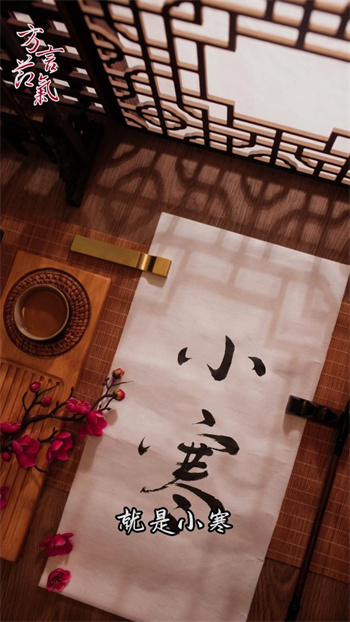 方言
节氣
小
寒
就是小寒